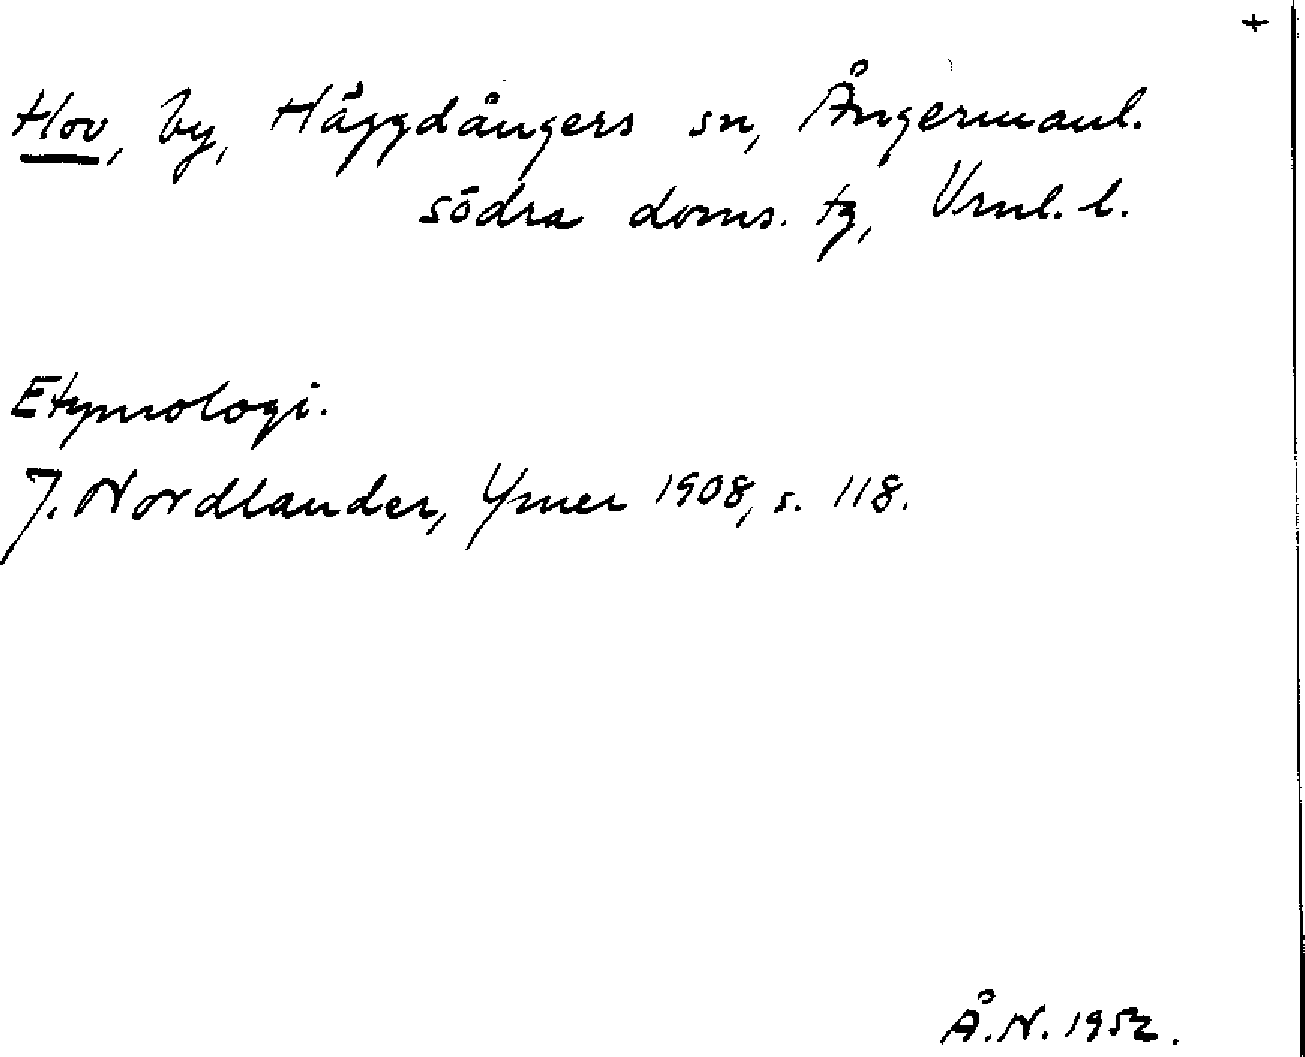 +
Hov, by, Häggdångers sn, Ångermanl.
södra doms. tg, Vrnl. l.
Etymologi.
J. Nordlander, Ymer 1908, s. 118.
Å.N. 1952.